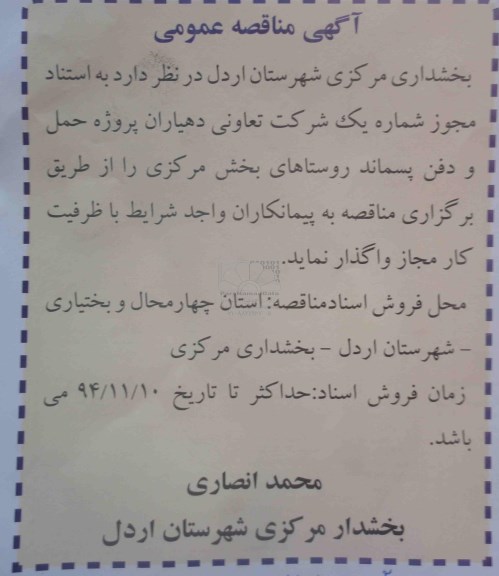 آگهی مناقصه عمومی
بخشداری مرکزی شهرستان اردل در نظر دارد به استناد
مجوز شماره یک شرکت تعاونی دهیاران پروژه حمل
و دفن پسماند روستاهای بخش مرکزی را از طریق
برگزاری مناقصه به پیمانکاران واجد شرایط با ظرفیت
کار مجاز واگذار نماید.
محل فروش اسنادمناقصه: استان چهارمحال و بختیاری
– شهرستان اردل – بخشداری مرکزی
زمان فروش اسناد:حداکثر تا تاریخ ۹۴/۱۱/۱۰ می
باشد.
محمد انصاری
بخشدار مرکزی شهرستان اردل